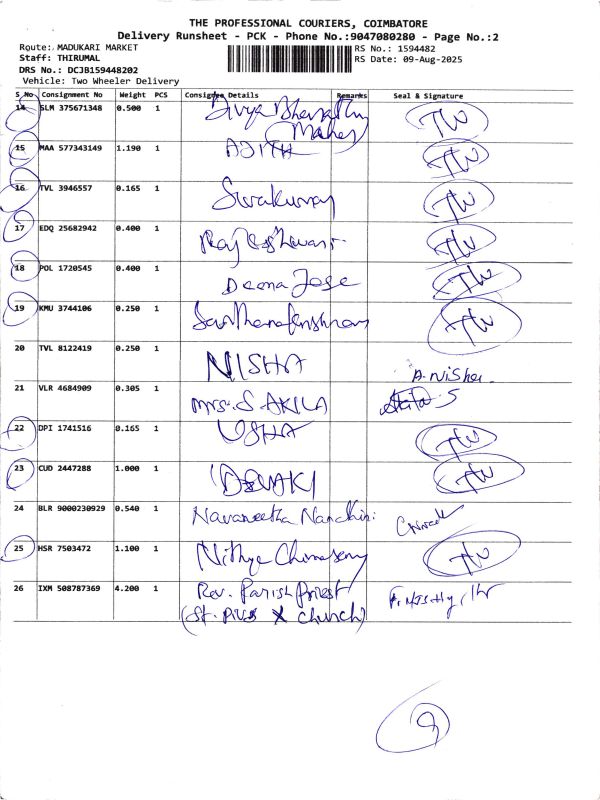 THE PROFESSIONAL COURIERS, COIMBATORE
Delivery Runsheet - PCK - Phone No.:9047080280 - Page No.:2
Route: MADUKARI MARKET RS No.: 1594482
Staff: THIRUMAL RS Date: 09-Aug-2025
DRS No.: DCJB159448202
Vehicle: Two Wheeler Delivery
S.No Consignment No Weight PCS Consignee Details Remarks Seal & Signature
14 SLM 375671348 0.500 1 Divya Bharathy
Mahes
15 MAA 577343149 1.190 1 AJITH
16 TVL 3946557 0.165 1 Sivakumar
17 EDQ 25682942 0.400 1
18 POL 1720545 0.400 1 Deena Jose
19 KMU 3744106 0.250 1
20 TVL 8122419 0.250 1 NISHA A. Nisha.
21 VLR 4684909 0.305 1 Mrs. S AKILA Akila S
22 DPI 1741516 0.165 1 USHA
23 CUD 2447288 1.000 1 DEVAKI
24 BLR 9000230929 0.540 1 Navaneetha Nandhini
25 HSR 7503472 1.100 1 Nithya
26 IXM 508787369 4.200 1 Rev. Parish Priest
(St. Pius X Church)
9